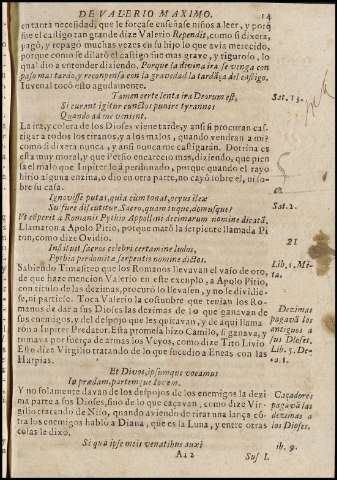 DE VALERIO MAXIMO. 14
en tanta necesidad, que le forçase enseñase niños a leer, y porq
fue el castigo tan grande dize Valerio Rependit, como si dixera,
pagó, y repagó muchas vezes en su hijo lo que avia merecido,
porque como se dilató el castigo fue mas grave, y riguroso, lo
qual dio a entender diziendo, Porque la divina ira se venga con
paso mas tardo, y recompensa con la gravedad la tardãça del castigo,
Iuvenal tocó esto agudamente.
Tamen certe lenta ira Deorum est, Sat. 13.
Si curant igitur cunctos punire nocentes
Quando ad me venient.
La ira, y colera de los Dioses viene tarde, y ansi si procuran cas-
tigar a todos los tiranos, y a los malos, quando vendran a mi?
como si dixera nunca, y ansi nunca me castigarán. Dotrina es
esta muy moral, y que Persio encarece mas, diziendo, que pien
sa el malo que Iupiter lo à perdonado, porque quando el rayo
hirio alguna enzina, ò dio en otra parte, no cayó sobre el, ni so-
bre su casa.
Ignovisse putas, quia cum tonat, ocyus ilex
Sulfure discutitur Sacro, quam tuque, domusque? Sat. 2.
Llamaron a Apolo Pitio, porque mató la serpiente llamada Pi
ton, como dize Ovidio. 21
Instituit sacros celebri certamine ludos,
Pythia perdomitæ serpentis nomine dictos. Lib. 1. Me-
ta.
Sabiendo Timasiteo que los Romanos llevavan el vaso de oro,
de que haze mencion Valerio en este exemplo, a Apolo Pitio,
con titulo de las decimas, procuró lo llevasen, y no se dividie-
se, ni partiese. Toca Valerio la costumbre que tenian los Ro-
manos de dar a sus Dioses las dezimas de lo que ganavan de
sus enemigos, y del despojo que les quitavan, y de aqui llama-
ron a Iupiter Predator. Esta promesa hizo Camilo, si ganava, y
tomava por fuerza de armas los Veyos, como dize Tito Livio
Esto dize Virgilio tratando de lo que sucedio a Eneas con las
Harpias.
Dezimas
pagavã los
antiguos a
sus Dioses.
Et Divos, ipsumque vocamus
In prædam, partemque Iovem.
Y no solamente davan de los despojos de los enemigos la dezi
ma parte a sus Dioses, sino de lo que caçavan, como dize Vir-
gilio tratando de Niso, quando aviendo de tirar una lança cõ-
tra los enemigos hablo a Diana, que es la Luna, y entre otras
cosas le dixo.
Caçadores
pagavã las
dezimas a
los Dioses.
Si qua ipse meis venatibus auxi ib. 9.
Aa 2 Sus